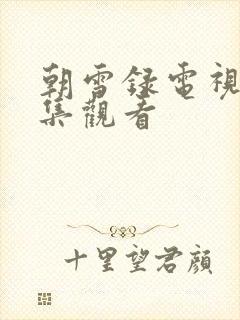 朝雪録電視
集觀看
十里望君顔